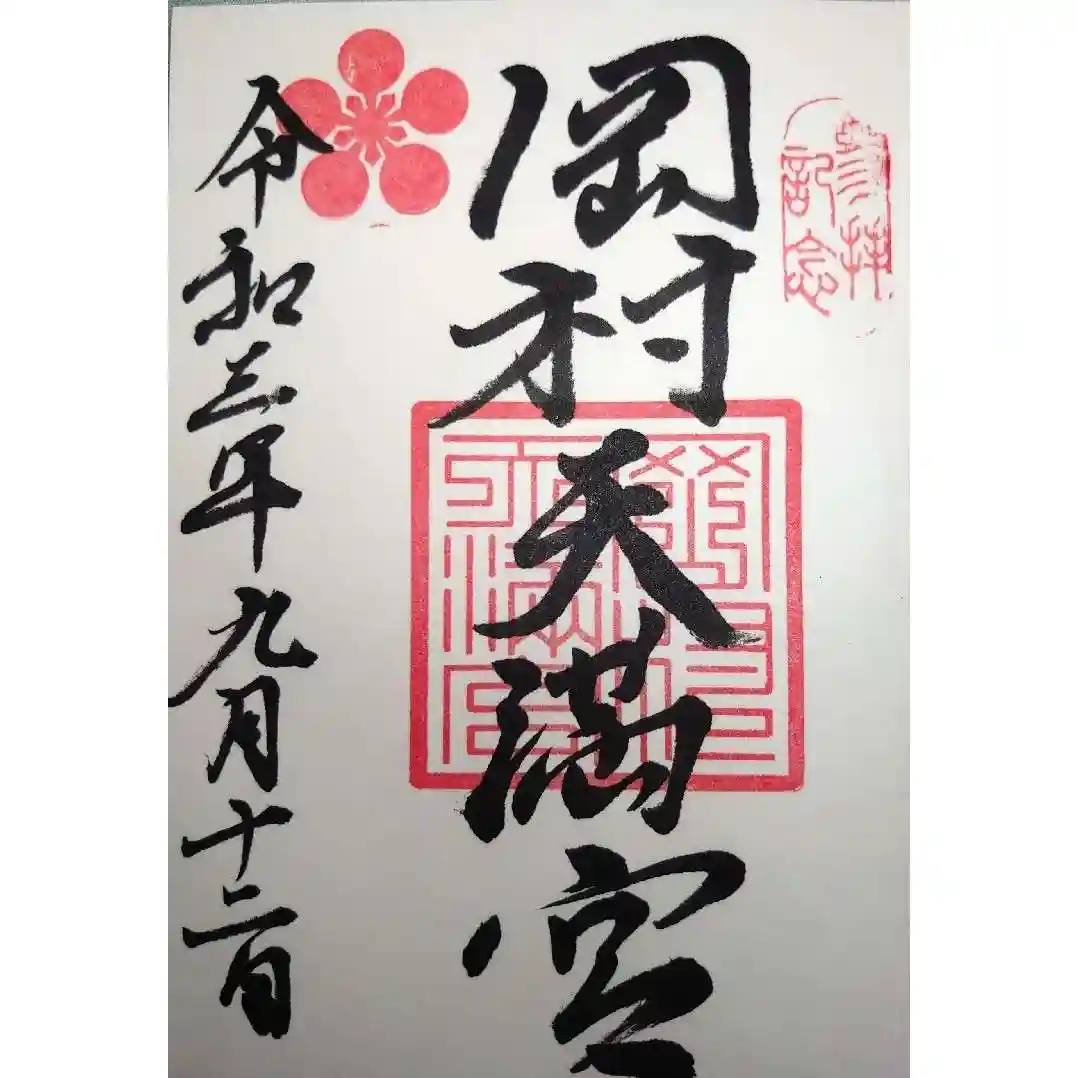 参拝
記念
岡村天満宮
令和三年九月十二日